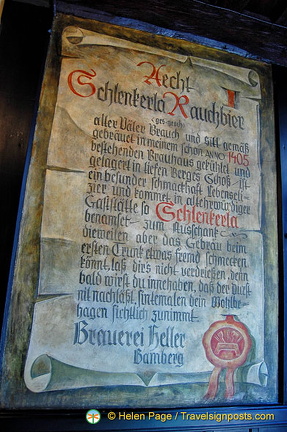 Aecht
Schlenkerla Rauchbier
aller Väter Brauch und Sitt gemäß
gebrauet in meinem schon ANNO 1405
bestehenden Brauhaus gekühlt und
gelagert in tiefen Berges Schoß ist
ein besunder schmackhaft Lebenseli-
xier und kommet in altehrwürdiger
Gaststätte so Schlenkerla
benamset zum Ausschank
dieweilen aber das Gebräu beim
ersten Trunk etwas fremd schmecken
könnt, laß dirs nit verdrießen, denn
bald wirst du innehaben, daß der Durst
nit nachläßt, sintemalen dein Wohlbe-
hagen sichtlich zunimmt.
Brauerei Heller
Bamberg
© Helen Page / Travelsignposts.com